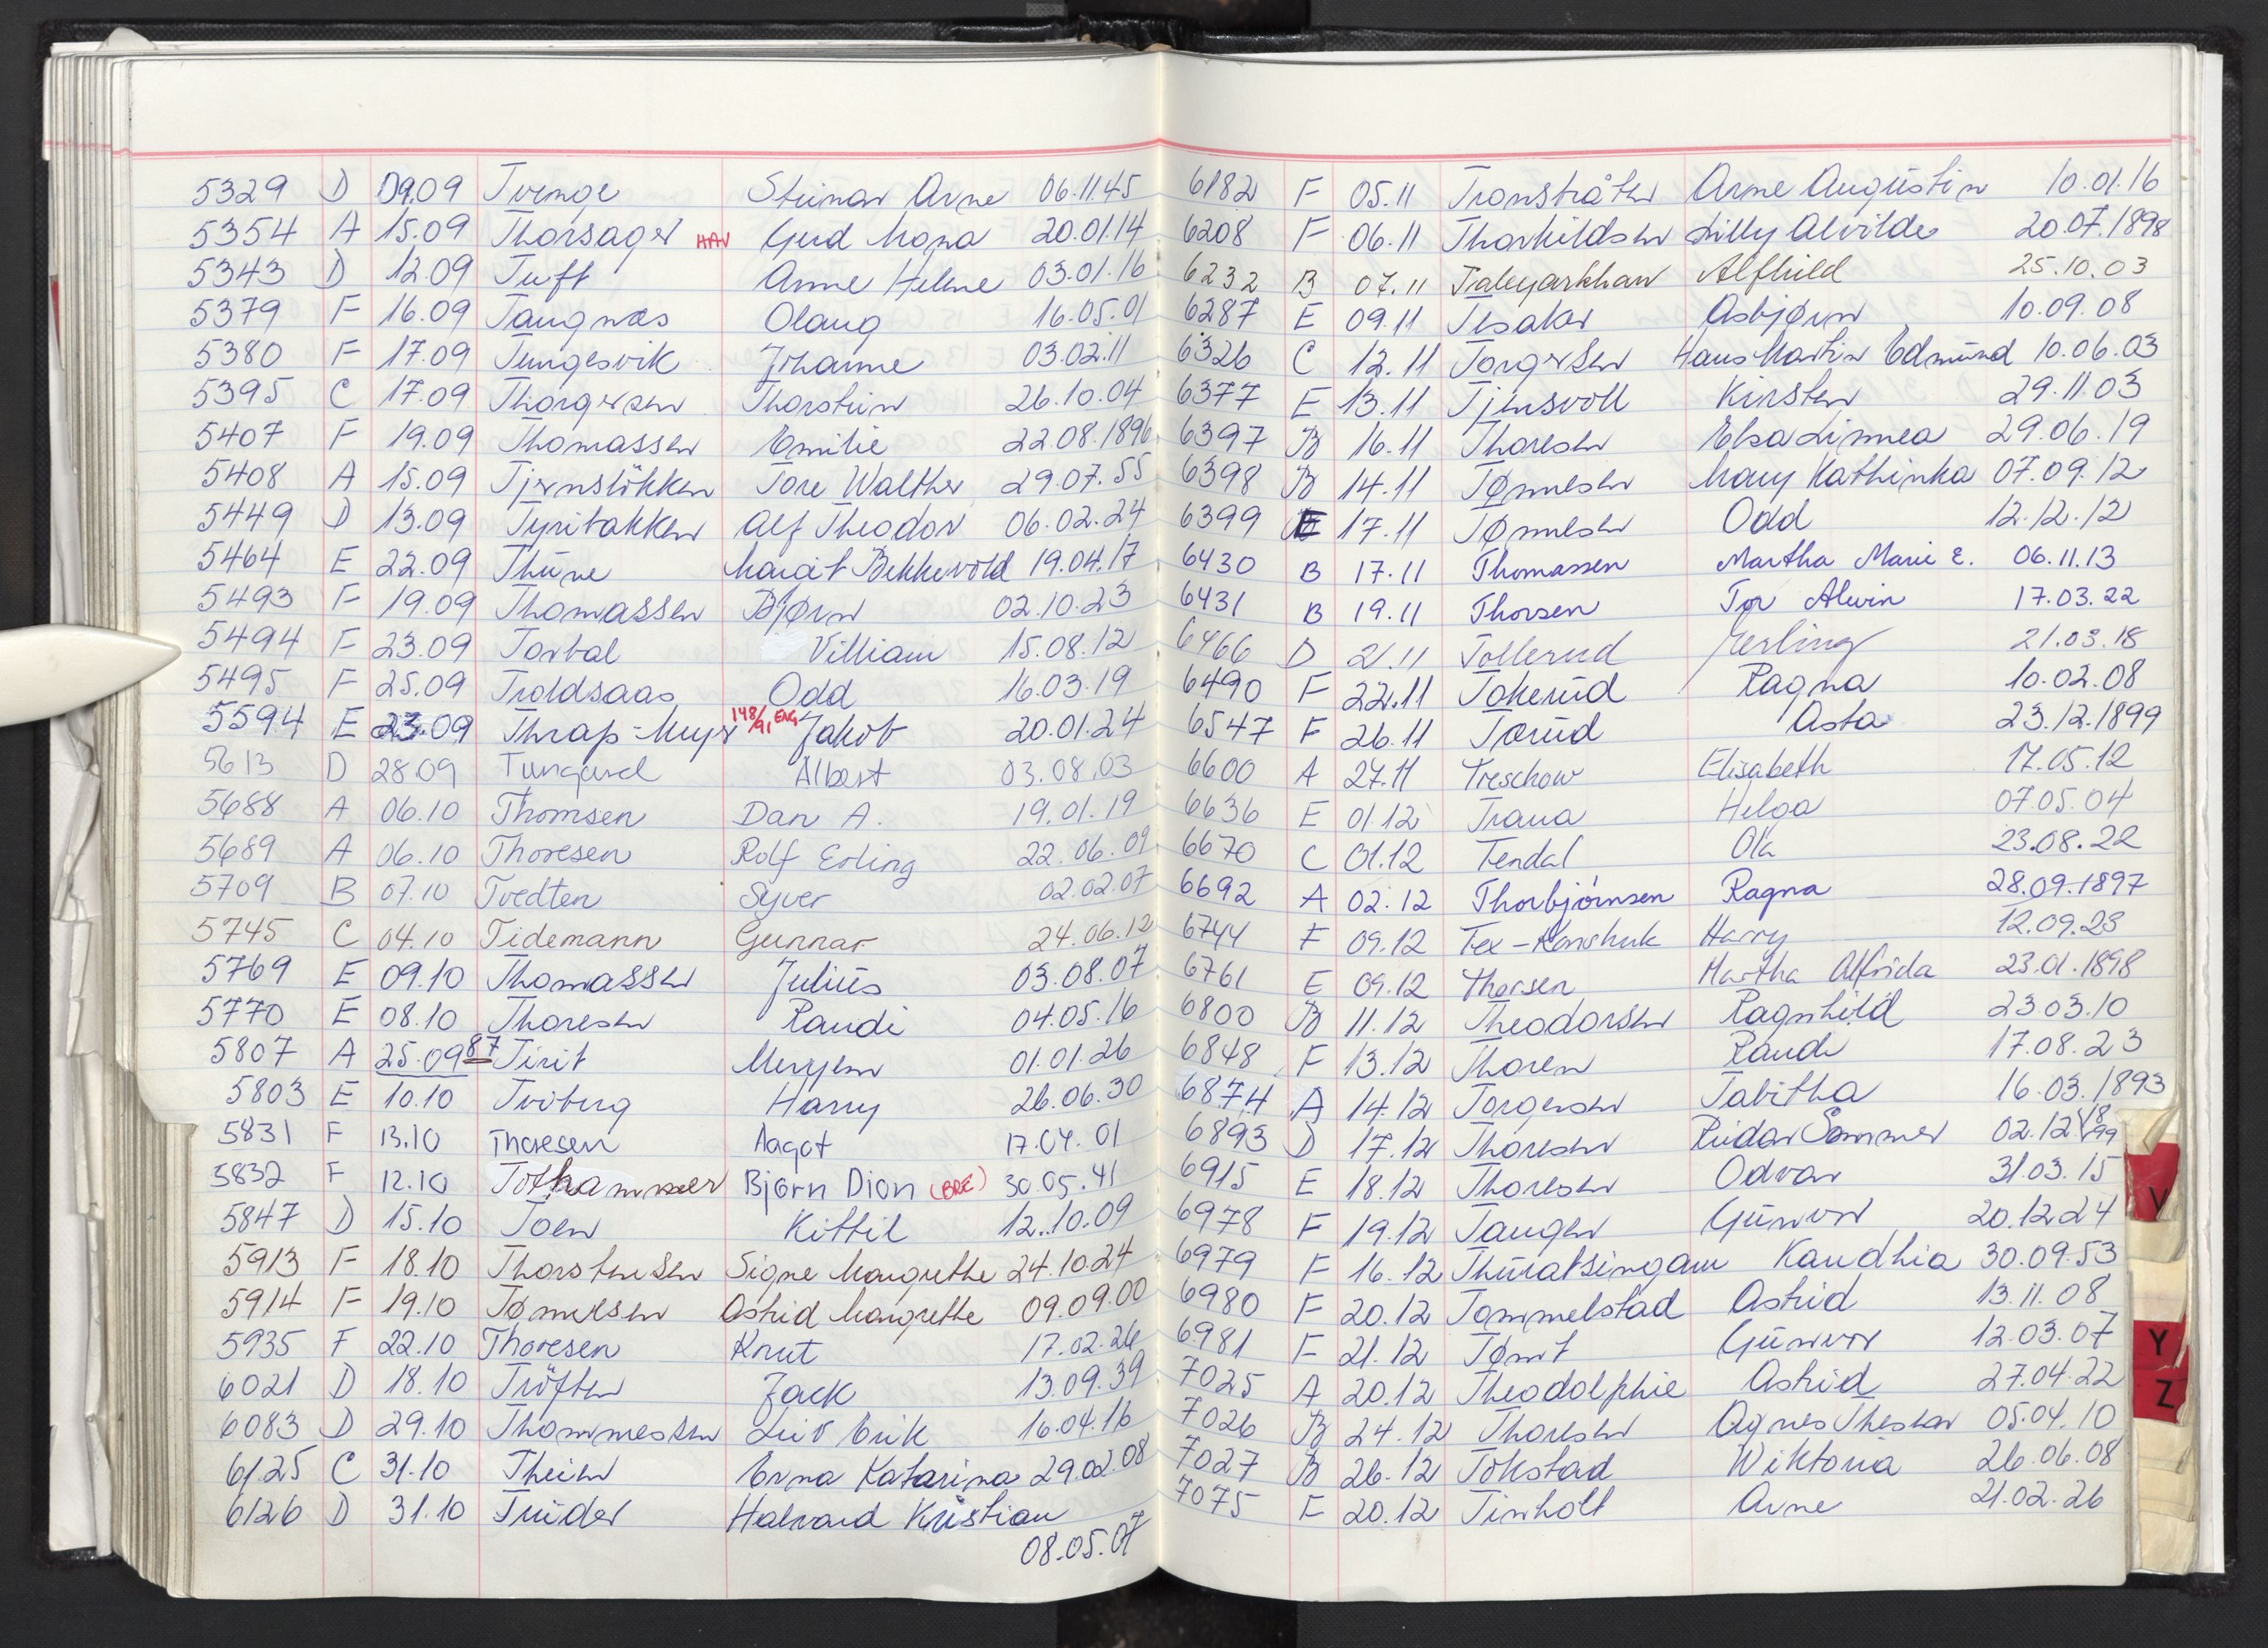 5329 D 09.09 Tvenge Steinar Arne 06.11.45
5354 A 15.09 Thorsager HAV Gerd Mona 20.01.14
5343 D 12.09 Tuft Anne Helene 03.01.16
5379 F 16.09 Taugnæs Olaug 16.05.01
5380 F 17.09 Tungesvik Johanne 03.02.11
5395 C 17.09 Thorgersen Thorstein 26.10.04
5407 F 19.09 Thomassen Emilie 22.08.1896
5408 A 15.09 Tjernslökken Tore Walther 29.07.55
5449 D 13.09 Tyribakken Alf Theodor 06.02.24
5464 E 22.09 Thune Margit Bekkevold 19.04.17
5493 F 19.09 Thomassen Bjørn 02.10.23
5494 F 23.09 Torbal Villiam 15.08.12
5495 F 25.09 Troldsaas Odd 16.03.19
5594 E 23.09 Thrap-Meyer 148/91 ENG Jakob 20.01.24
5613 D 28.09 Albert 03.08.03
5688 A 06.10 Thomsen Dan A. 19.01.19
5689 A 06.10 Thoresen Rolf Erling 22.06.09
5709 B 07.10 Tvedten Syver 02.02.07
5745 C 04.10 Tidemann Gunnar 24.06.12
5769 E 09.10 Thomassen Julius 03.08.07
5770 E 08.10 Thoresen Randi 04.05.16
5807 A 25.09 87 Tirit Meryem 01.01.26
5803 E 10.10 Tviberg Harry 26.06.30
5831 F 13.10 Thoresen Aagot 17.04.01
5832 F 12.10 Tothammer Bjørn Dion (BRE) 30.05.41
5847 D 15.10 Toen Kittil 12.10.09
5913 F 18.10 Thorstensen Signe Margrethe 24.10.24
5914 F 19.10 Tønnesen Astrid Margrethe 09.09.00
5935 F 22.10 Thoresen Knut 17.02.26
6021 D 18.10 Tröften Jack 13.09.39
6083 D 29.10 Thommessen Leiv Erik 16.04.16
6125 C 31.10 Theien Erna Katarina 29.02.08
6126 D 31.10 Halvard Kristian
08.05.07
6182 F 05.11 Tronstråten Arne Augustin 10.01.16
6208 F 06.11 Thorkildsen Lilly Alvilde 20.07.1898
6232 B 07.11 Taleyarkhan Alfhild 25.10.03
6287 E 09.11 Tesaker Asbjørn 10.09.08
6326 C 12.11 Torgersen Hans Martin Edmund 10.06.03
6377 E 13.11 Tjensvoll Kirsten 29.11.03
6397 B 16.11 Thoresen Elsa Linnea 29.06.19
6398 B 14.11 Tønnesen Mary Kathinka 07.09.12
6399 E 17.11 Tønnesen Odd 12.12.12
6430 B 17.11 Thomassen Martha Marie E. 06.11.13
6431 B 19.11 Thorsen Tor Alwin 17.03.22
6466 D 21.11 Tollerud Erling 21.03.18
6490 F 22.11 Tokerud Ragna 10.02.08
6547 F 26.11 Torud Asta 23.12.1899
6600 A 27.11 Treschow Elisabeth 17.05.12
6636 E 01.12 Trana Helga 07.05.04
6670 C 01.12 Tendal Ola 23.08.22
6692 A 02.12 Thorbjørnsen Ragna 28.09.1897
6744 F 09.12 Harry 12.09.23
6761 E 09.12 Thorsen Martha Alfrida 23.01.1898
6800 B 11.12 Theodorsen Ragnhild 23.03.10
6848 F 13.12 Thoren Randi 17.08.23
6874 A 14.12 Torgersen Tabitha 16.03.1893
6893 D 17.12 Thoresen Reidar Sommer 02.12.1899
6915 E 18.12 Thoresen Odvar 31.03.15
6978 F 19.12 Tangen Gunvor 20.12.24
6979 F 16.12 Thuratsingam Kandhia 30.09.53
6980 F 20.12 Tommelstad Astrid 13.11.08
6981 F 21.12 Tømt Gunvor 12.03.07
7025 A 20.12 Theodolphie Astrid 27.04.22
7026 B 24.12 Thoresen Agnes 05.04.10
7027 B 26.12 Tokstad Wiktoria 26.06.08
7075 F 20.12 Tinholt Arne 21.02.26
V
Y
Z